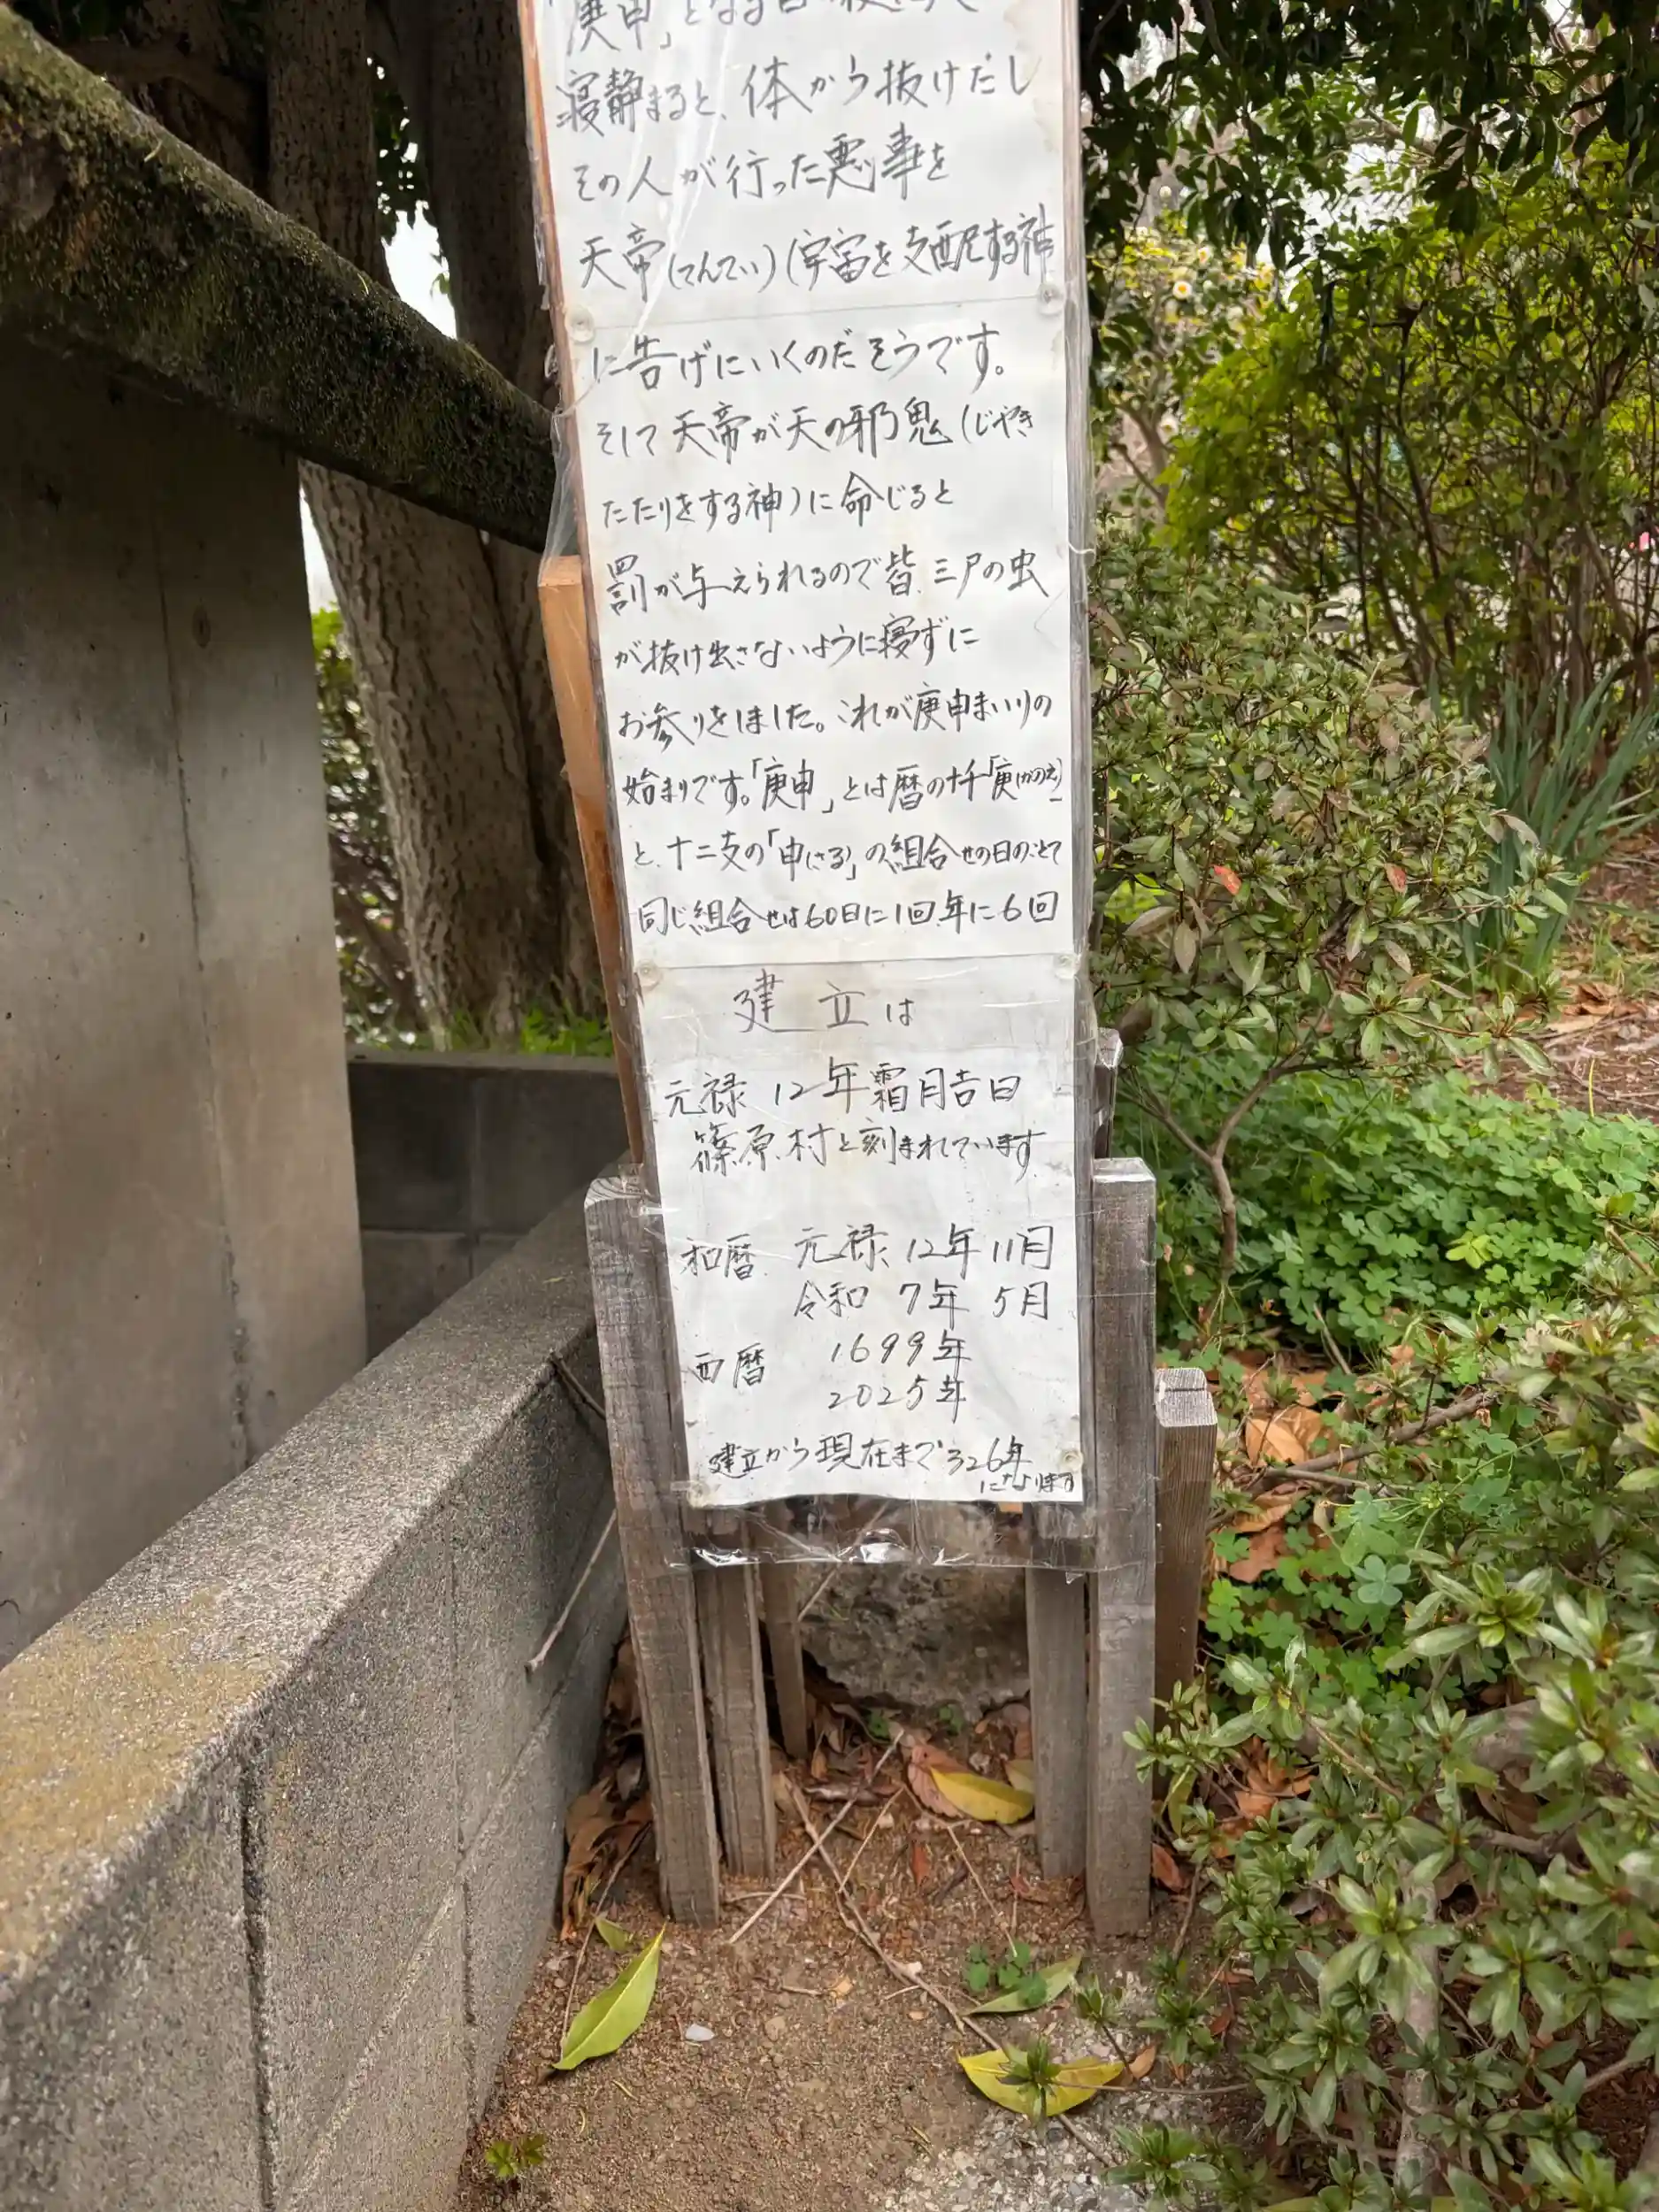 「庚申」となる日の夜
寝静まると、体から抜けだし
その人が行った悪事を
天帝(てんてい)(宇宙を支配する神
に告げにいくのだそうです。
そして天帝が天の邪鬼(じゃき
たたりをする神)に命じると
罰が与えられるので皆、三尸の虫
が抜け出さないように寝ずに
お参りをしました。これが庚申まいりの
始まりです。「庚申」とは暦の十干「庚(かのえ)」
と、十二支の「申(さる)」の組合せの日のことで
同じ組合せは60日に1回、年に6回
建立は
元禄12年霜月吉日
篠原村と刻まれています
和暦 元禄12年11月
令和 7年 5月
西暦 1699年
2025年
建立から現在まで326年
になります